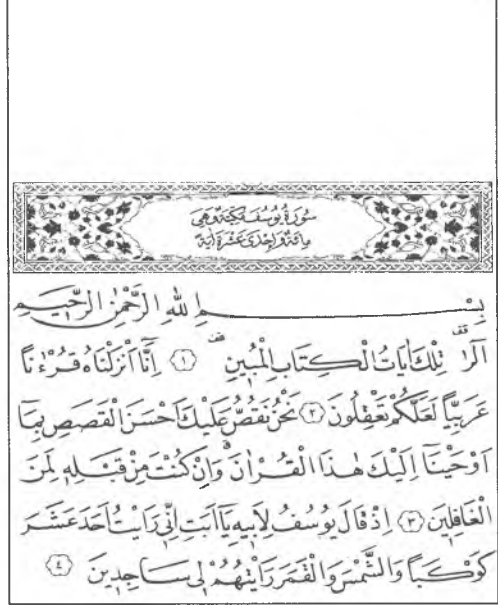 سُورَةُ يُوسُفَ مَكِّيَّةٌ وَهِيَ
مِائَةٌ وَاِحْدٰى عَشْرَةَ اٰيَةً
بِسْمِ اللهِ الرَّحْمٰنِ الرَّحٖيمِ
الٓرٰ تِلْكَ اٰيَاتُ الْكِتَابِ الْمُبٖينِ ﴿١﴾ اِنَّٓا اَنْزَلْنَاهُ قُرْءٰنًا
عَرَبِيًّا لَعَلَّكُمْ تَعْقِلُونَ ﴿٢﴾ نَحْنُ نَقُصُّ عَلَيْكَ اَحْسَنَ الْقَصَصِ بِمَٓا
اَوْحَيْنَٓا اِلَيْكَ هٰذَا الْقُرْاٰنَ وَاِنْ كُنْتَ مِنْ قَبْلِهٖ لَمِنَ
الْغَافِلٖينَ ﴿٣﴾ اِذْ قَالَ يُوسُفُ لِاَبٖيهِ يَٓا اَبَتِ اِنّٖى رَاَيْتُ اَحَدَ عَشَرَ
كَوْكَبًا وَالشَّمْسَ وَالْقَمَرَ رَاَيْتُهُمْ لٖى سَاجِدٖينَ ﴿٤﴾